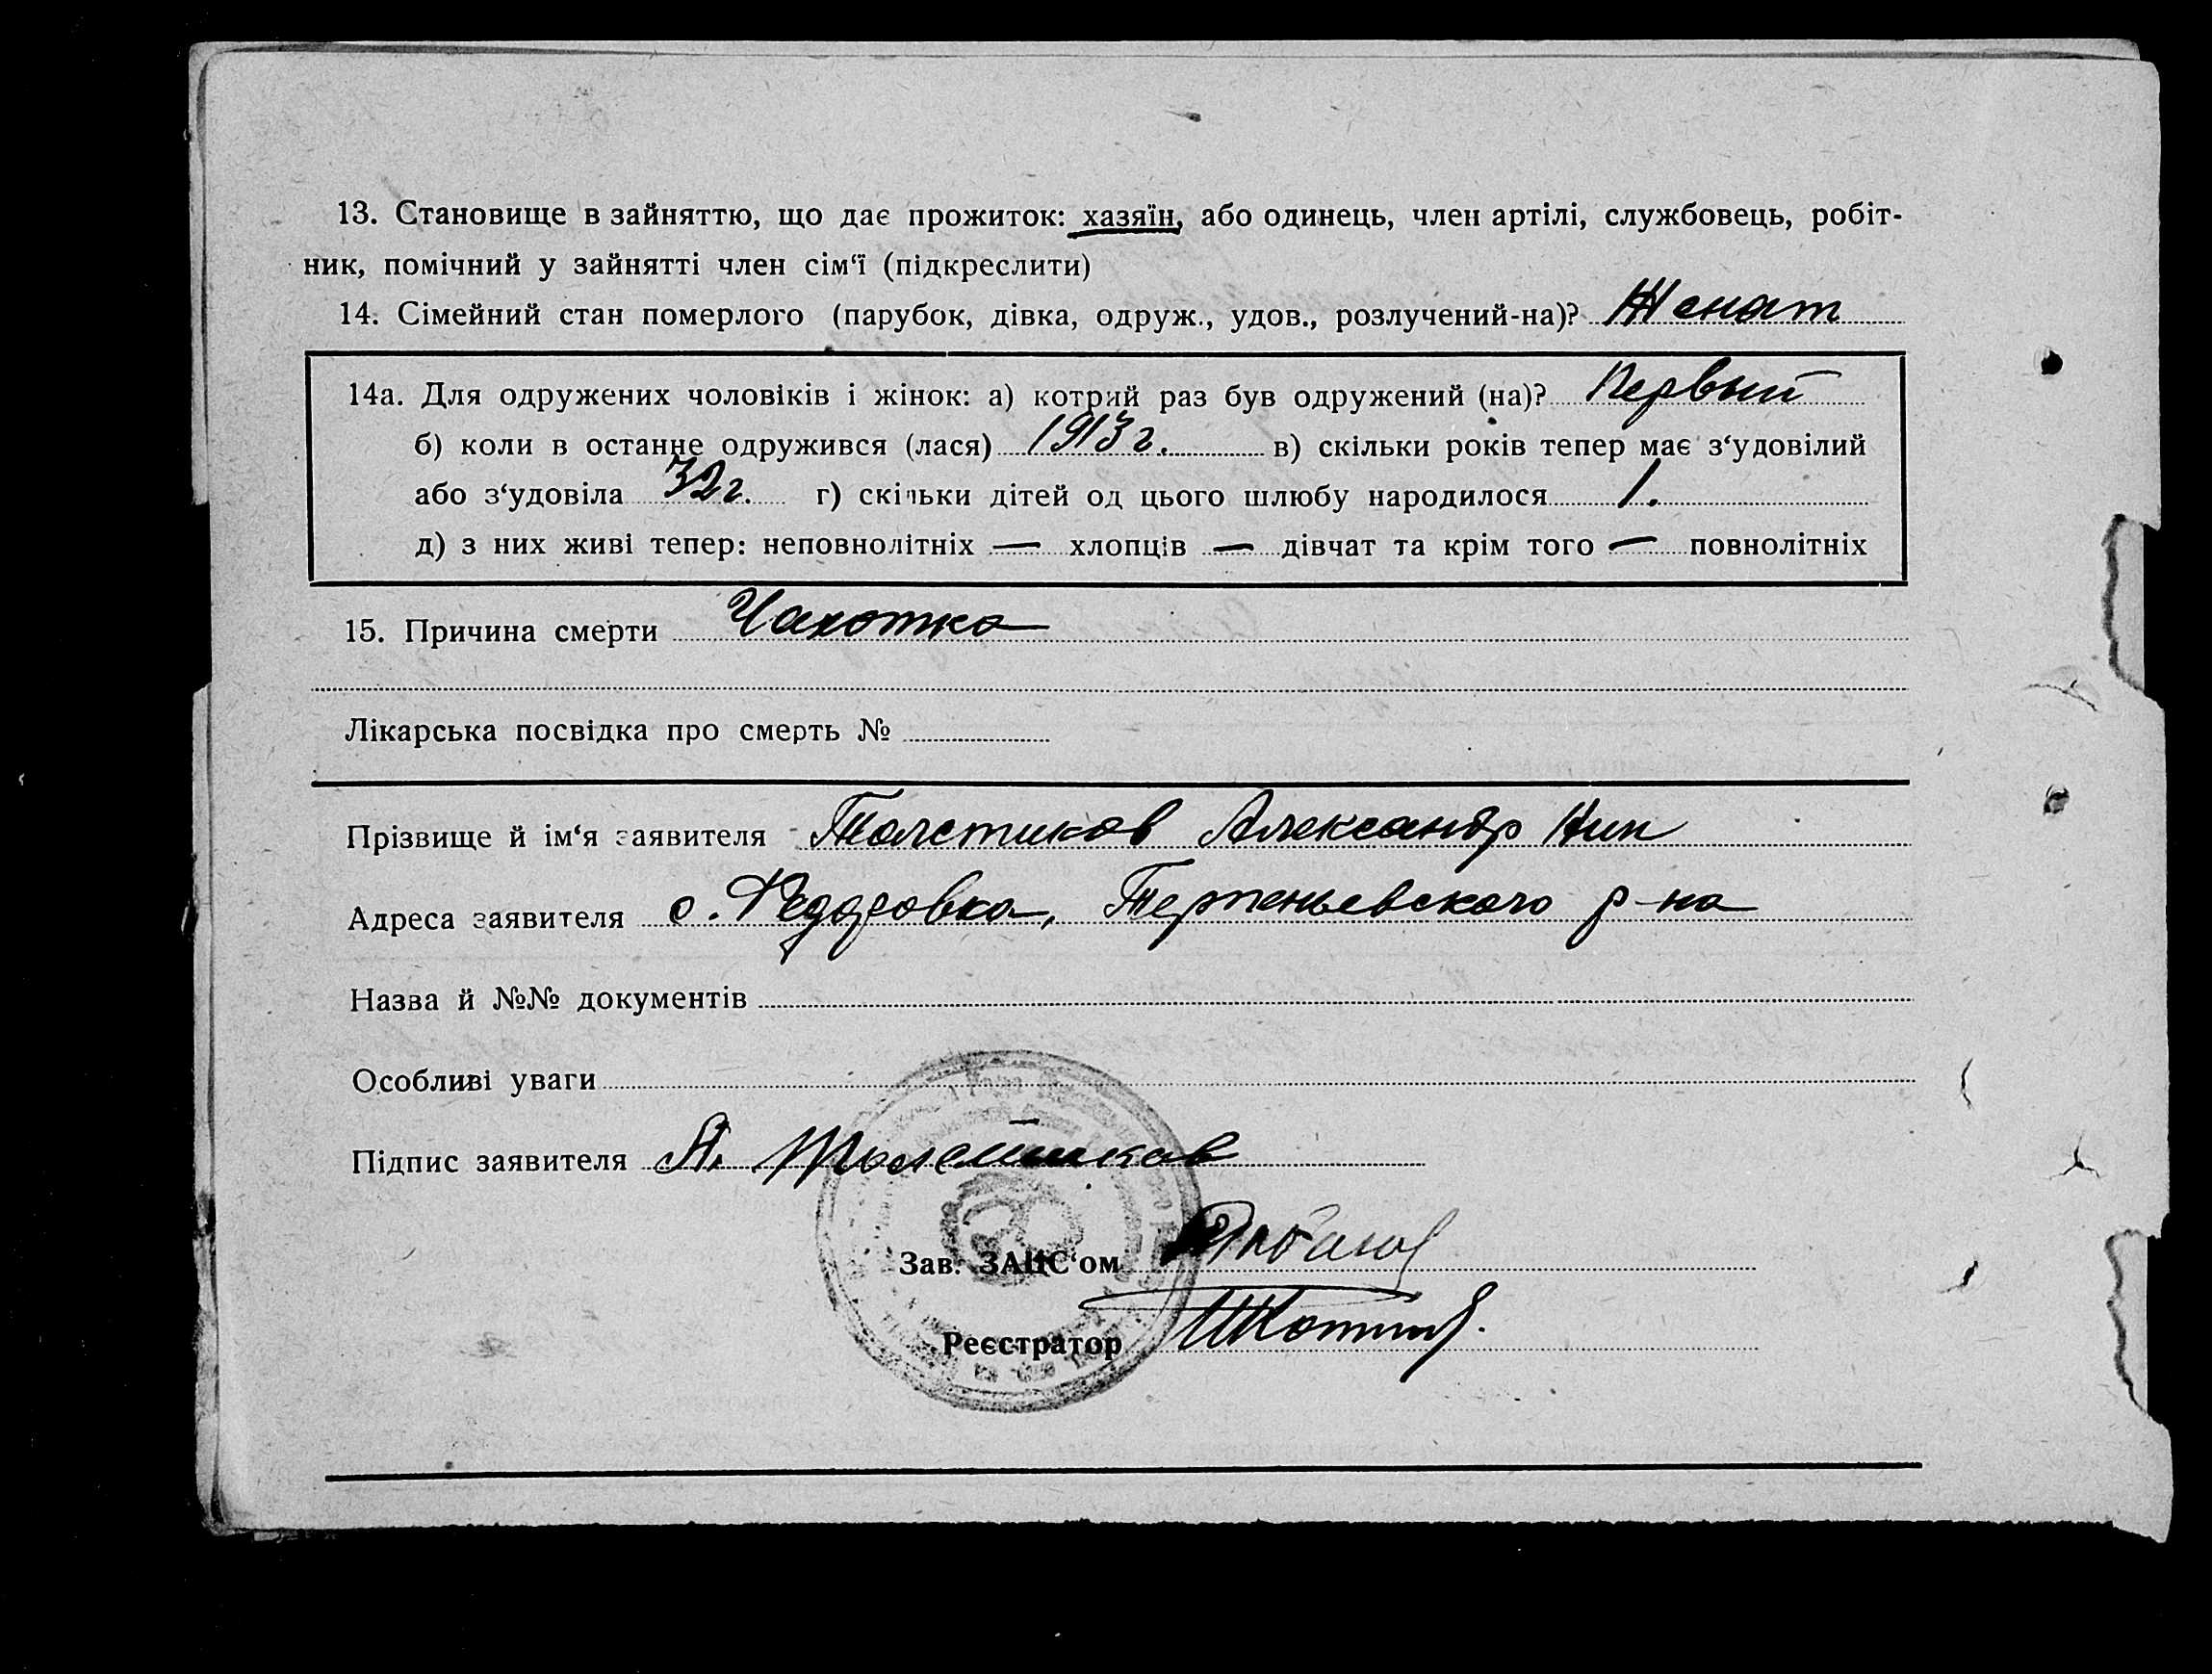 13. Становище в зайняттю, що дає прожиток: хазяїн, або одинець, член артілі, службовець, робіт-
ник, помічний у зайнятті член сім‘ї (підкреслити)
14. Сімейний стан померлого (парубок, дівка, одруж., удов., розлучений-на)? Женат
14а. Для одружених чоловіків і жінок: а) котрий раз був одружений (на)? Первый
б) коли в останнє одружився (лася) 1913 г. в) скільки років тепер має з‘удовілий
або з‘удовіла 32 г. г) скільки дітей од цього шлюбу народилося 1.
д) з них живі тепер: неповнолітніх — хлопців — дівчат та крім того — повнолітніх
15. Причина смерти Чахотка
Лікарська посвідка про смерть №
Прізвище й ім‘я заявителя Толстиков Александр Ник
Адреса заявителя с. Федоровка, Терпеньевского р-на
Назва й №№ документів
Особливі уваги
Підпис заявителя А. Толстиков
Зав. ЗАЦС‘ом
Реєстратор